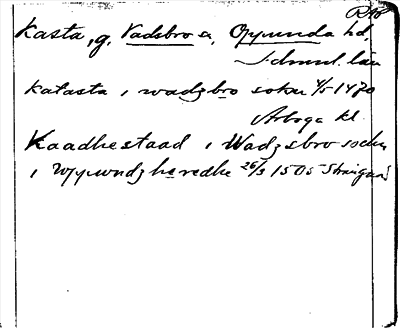 RAp
Kasta, g. Vadsbro s., Oppunda hd.
Södml. län
Katasta i wadzbro sokn 4/5 1470
Arboga kl.
Kaadhestaad i Wadzsbro socken
i Wypwndzheredhe 26/3 1505